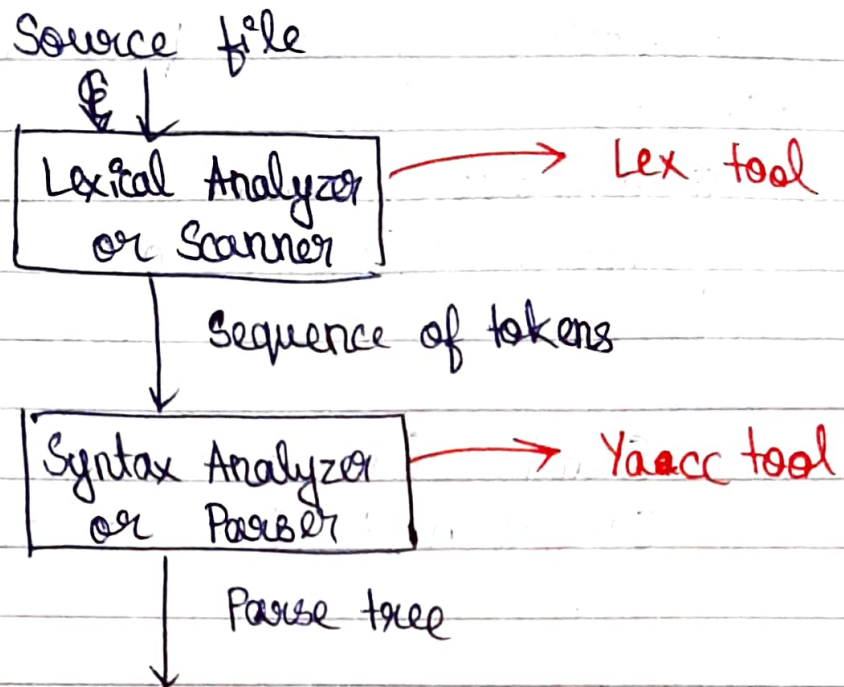 Source file
Lexical Analyzer
or Scanner
Lex tool
Sequence of tokens
Syntax Analyzer
or Parser
Yaacc tool
Parse tree